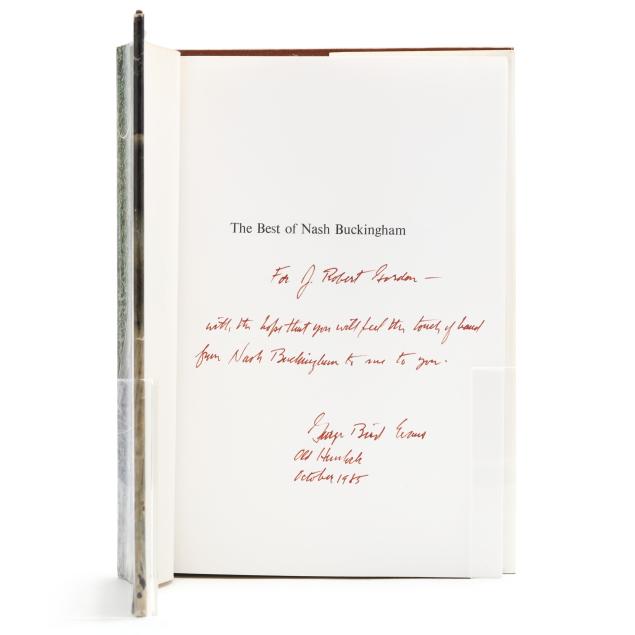 The Best of Nash Buckingham
For J. Robert Gordon —
with the hope that you will feel the touch of hand
from Nash Buckingham to me to you.
George Bird Evans
Old Hemlock
October 1985